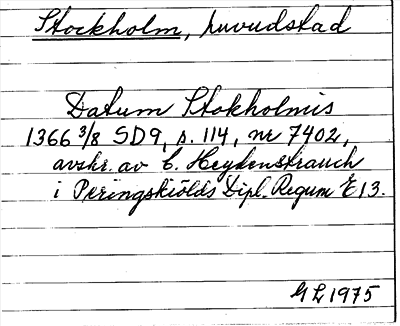 Stockholm, huvudstad
Datum Stokholmis
1366 3/8 SD9, s. 114, nr 7402,
avskr. av C. Heydenstrauch
i Peringskiölds Dipl. Regum E 13.
G L 1975